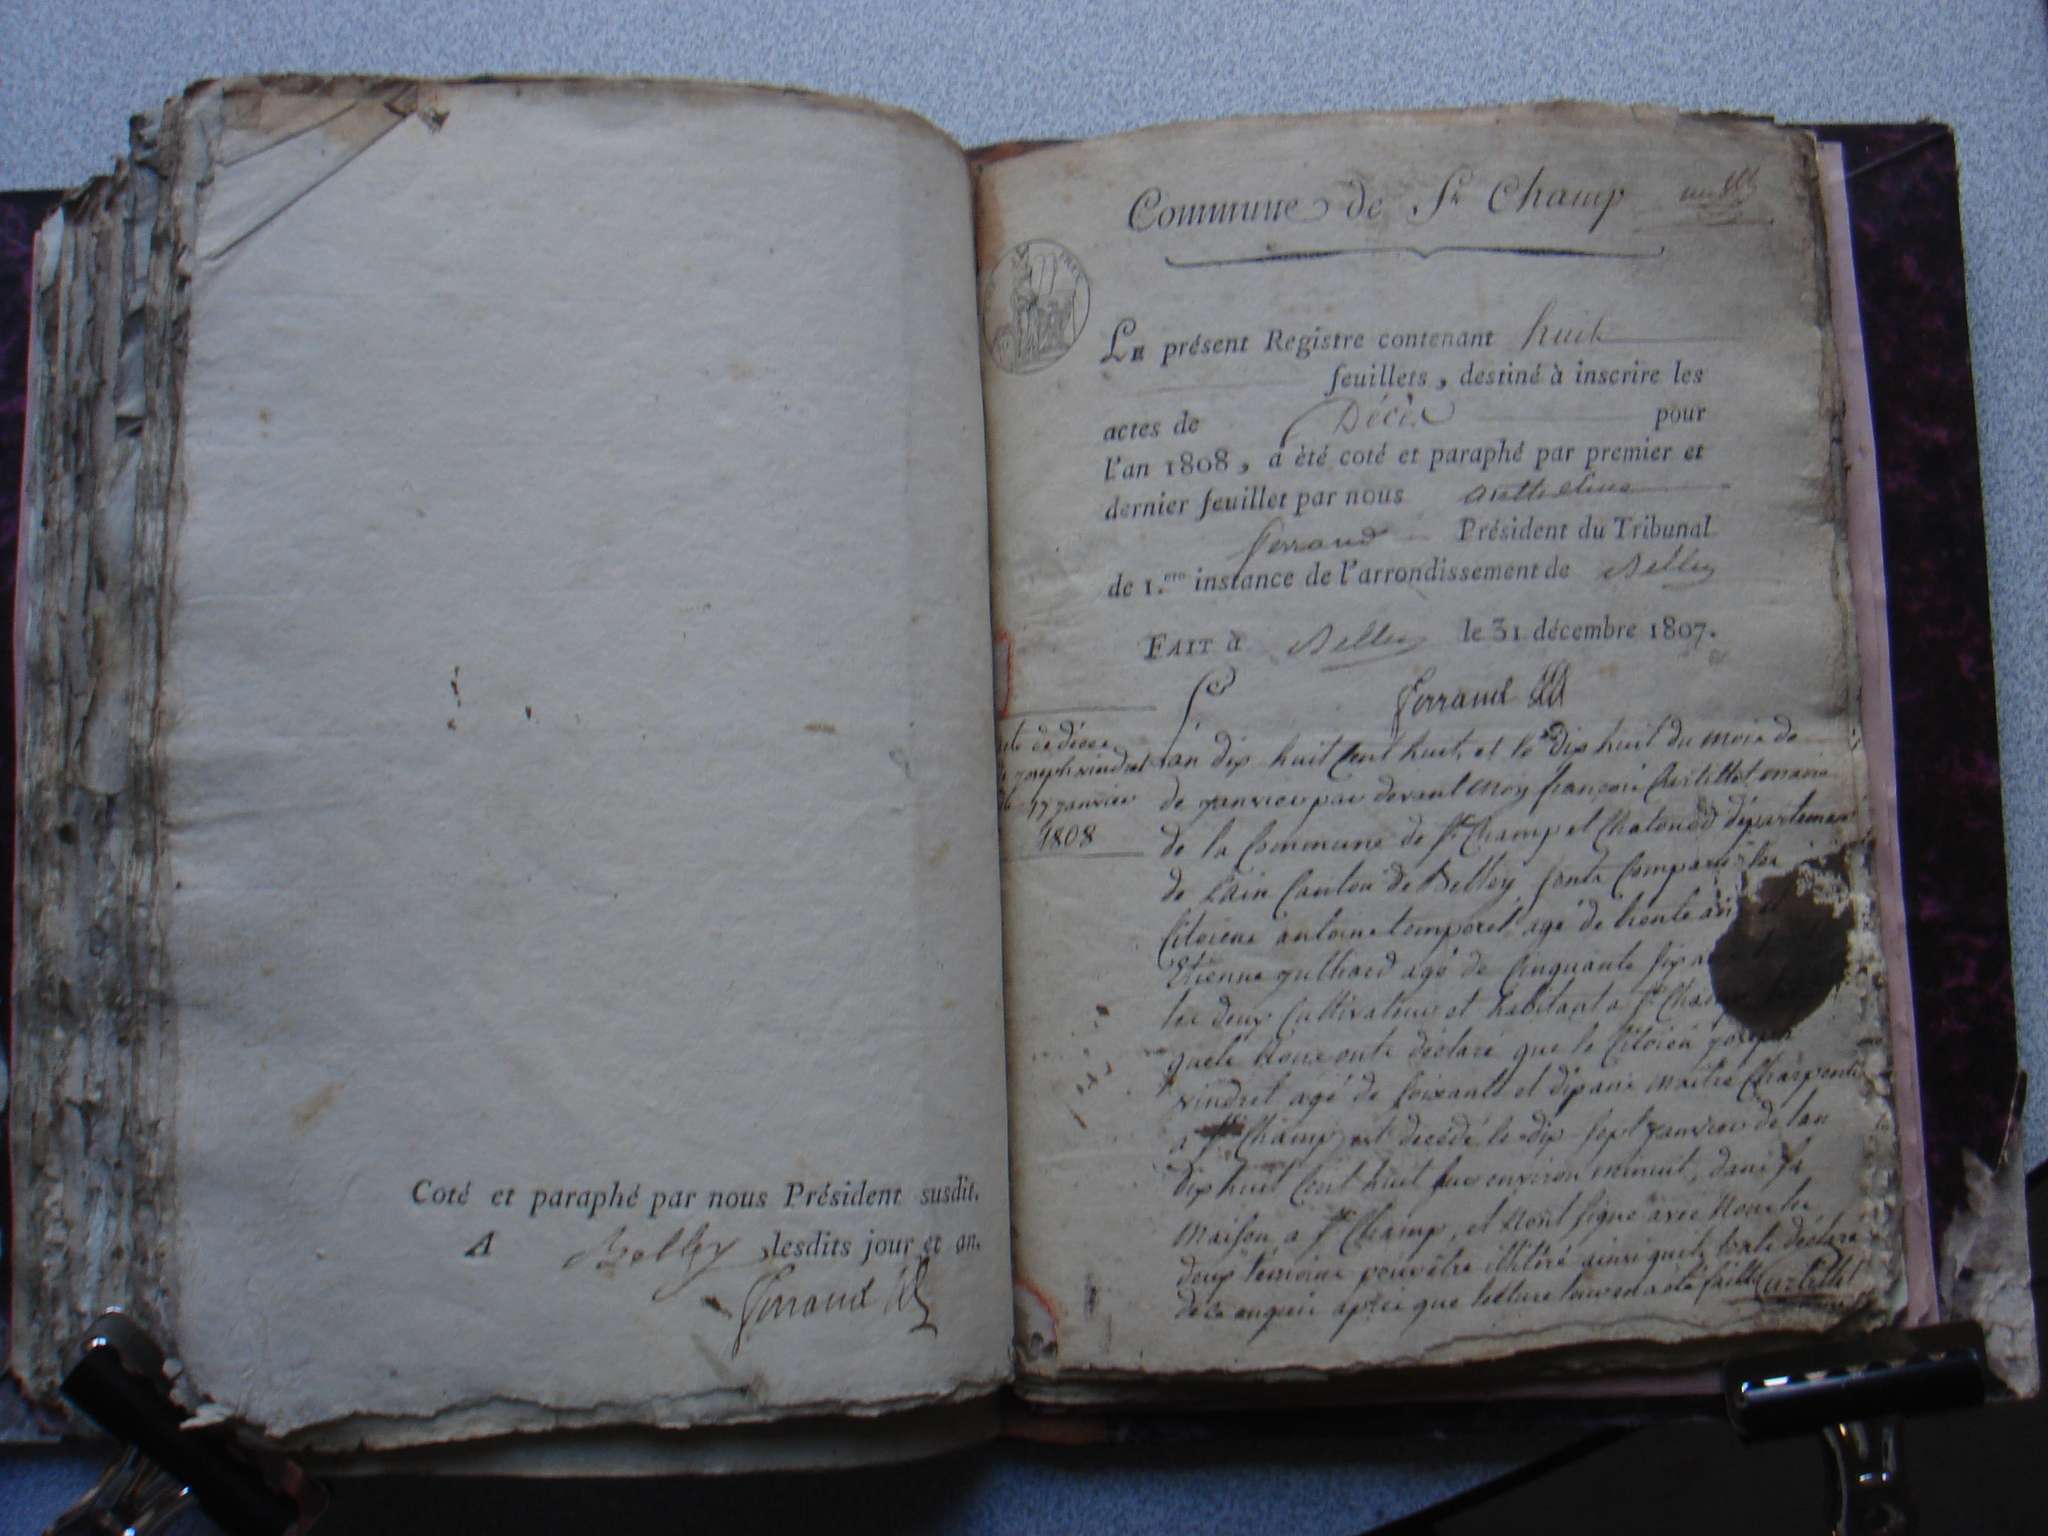 Coté et paraphé par nous Président susdit.
A Belley, lesdits jour et an.
Ferrand
Commune de St Champ
LE présent Registre contenant huit
feuillets, destiné à inscrire les
actes de Décès pour
l'an 1808, a été coté et paraphé par premier et
dernier feuillet par nous anthelme
ferrand Président du Tribunal
de 1.ere instance de l'arrondissement de Belley
FAIT à Belley le 31 décembre 1807.
Ferrand
de décès
joseph vindret
17 janvier
1808
L'an dix huit Cent huit, et le dix huit du mois de
de janvier par devant moy françois Curtillet maire
de la Commune de St Champ et Chatonod département
de l'ain Canton de Belley sont Comparu les
Citoiens antoine temporel agé de trente ans et
Etienne julliard agé de Cinquante six
les deux Cultivateurs et habitant a St Champ
quels nous ont déclaré que le Citoien joseph
vindret agé de soixante et dix ans maitre Charpentier
a St Champ est decédé le dix sept janvier de lan
dix huit Cent huit sur environ minuit, dans sa
maison a St Champ, et nont signé avec nous les
deux témoins pour être illitéré ainsi quils lonts déclaré
de ce enquis après que lecture leur en a été faitte Curtillet